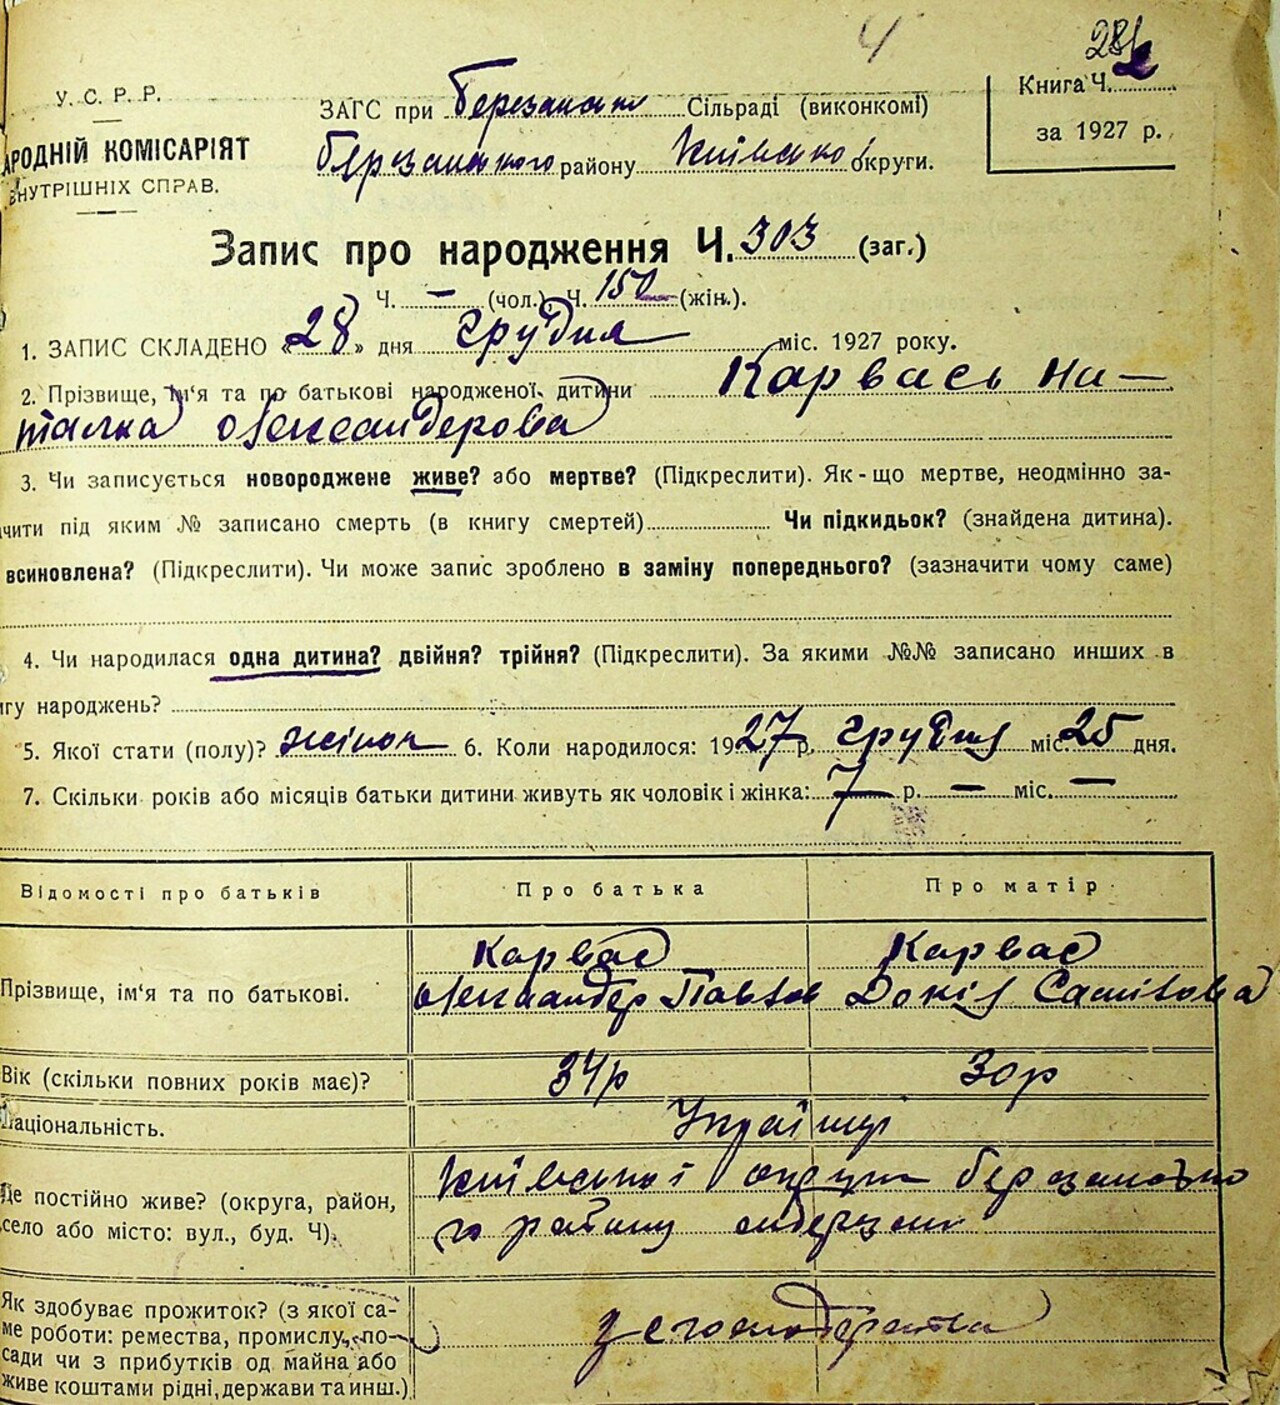 4
28
У. С. Р. Р.
АРОДНІЙ КОМІСАРІЯТ
ВНУТРІШНІХ СПРАВ.
ЗАГС при Березанськ Сільраді (виконкомі)
Березанського району Київсько округи.
Книга Ч. 2
за 1927 р.
Запис про народження Ч. 303 (заг.)
Ч. — (чол.), Ч. 150 (жін.).
1. ЗАПИС СКЛАДЕНО «28» дня грудня міс. 1927 року.
2. Прізвище, ім‘я та по батькові народженої дитини Карвась На-
талка Олександерова
3. Чи записується новороджене живе? або мертве? (Підкреслити). Як-що мертве, неодмінно за-
ачити під яким № записано смерть (в книгу смертей) Чи підкидьок? (знайдена дитина).
всиновлена? (Підкреслити). Чи може запис зроблено в заміну попереднього? (зазначити чому саме)
4. Чи народилася одна дитина? двійня? трійня? (Підкреслити). За якими №№ записано инших в
игу народжень?
5. Якої стати (полу)? жіноч 6. Коли народилося: 1927 р. грудня міс. 25 дня.
7. Скільки років або місяців батьки дитини живуть як чоловік і жінка: 7 р. — міс. —
Відомості про батьків Про батька Про матір
Карвас Карвас
Прізвище, ім‘я та по батькові. Олександер Павлов Докія Самілова
Вік (скільки повних років має)? 34р 30р
Національність. Українці
Київської округи Березансько
Де постійно живе? (округа, район,
го району
село або місто: вул., буд. Ч).
Як здобуває прожиток? (з якої са-
ме роботи: ремества, промислу, по-
з сгосподарства
сади чи з прибутків од майна або
живе коштами рідні, держави та инш.)